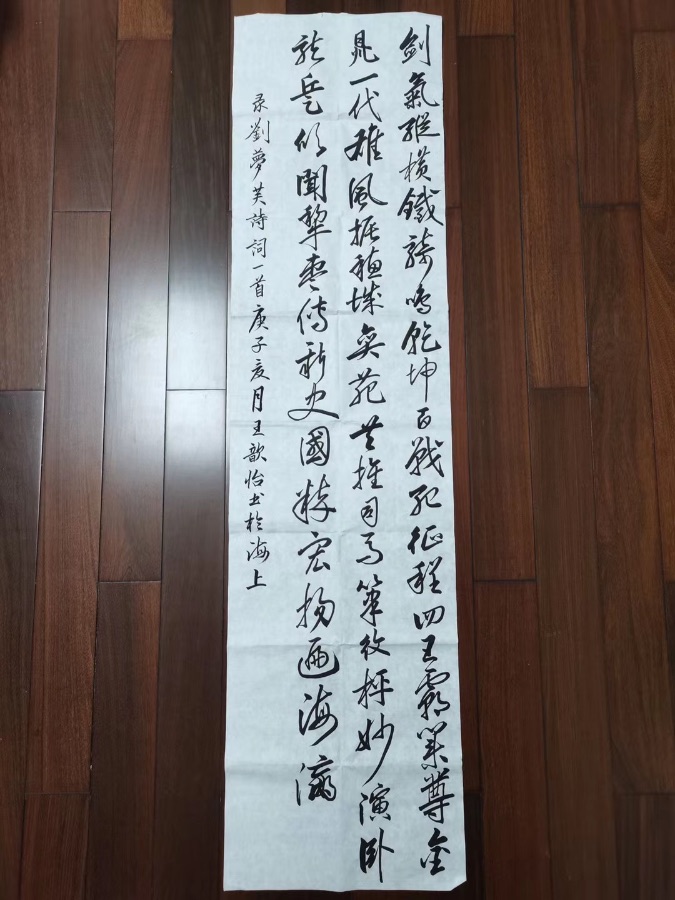 劍氣縱橫鐵騎鳴乾坤百戰紀征程四王霸業尊金
鼎一代雄風振穗城奕苑共推司馬筆紋枰妙演卧
龍兵欣聞梨棗傳新史國粹宏揚遍海瀛
录劉夢芙詩詞一首庚子亥月王歆怡书於海上